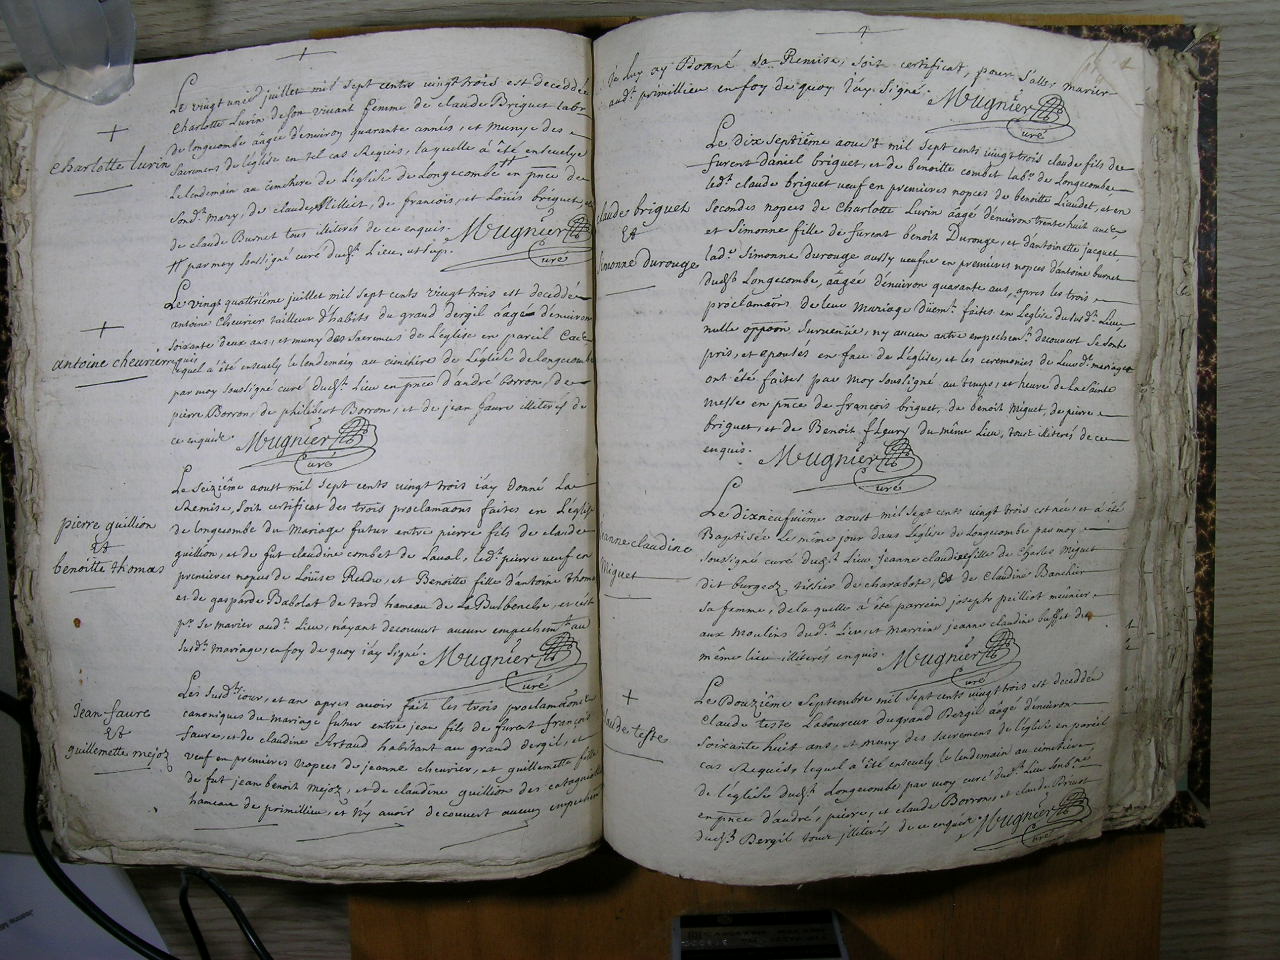 charlotte lurin
Le vingt unie juillet mil sept cents vingt trois est deceddée
charlotte Lurin de son vivant femme de claude Briguet labr
de longecombe aâgée d'environ quarante années, et munye des
sacremens de l'église en tel cas Requis, laquelle a été ensevelye
le lendemain au cimetiere de l'église de Longecombe en pnce de
sond.t mary, de claude Milliet, de françois, et Loüis briguet, et
de claude Burnet tous illiteres de ce enquis. Mugnier
tt par moy soussigné curé dud.t Lieu, curé
antoine cheurier
Le vingt quattriême juillet mil sept cents vingt trois est deceddé
antoine Cheurier tailleur d'habits du grand dergil aâgé d'environ
soixante deux ans, et muny des sacremens de L'église en pareil Cas
requis
lequel a été ensevely le lendemain au cimetiere de L'église de longecombe
par moy soussigné curé dud.t Lieu en pnce d'andré borron, de
pierre Borron, de philibert Borron, et de jean faure illiterés de
ce enquis. Mugnier
curé
pierre guillion
et
benoitte thomas
Le seiziême aoust mil sept cents vingt trois i'ay donné La
Remise, soit certificat des trois proclamaons faites en L'église
de longecombe du Mariage futur entre pierre fils de claude
guillion, et de fut claudine combet de Laual, led.t pierre veuf en
premieres nopces de Loüise Redu, et Benoitte fille d'antoine thomas
et de gasparde Babolat de tard hameau de La Burbenche, et c'est
pr se marier aud.t Lieu, n'ayant decouvert aucun empechemt au
susd.t mariage, en foy de quoy i'ay signé. Mugnier
curé
Jean faure
et
guillemette mejoz
Les susd.t iour, et an apres avoir fait les trois proclamaons
canoniques du mariage futur entre jean fils de furent françois
faure, et de claudine Artaud habitant au grand dergil, et
veuf en premieres nopces de jeanne cheurier, et guillemette fille
de fut jean benoit mejoz, et de claudine guillion des
hameau de primillieu, et n'y avoir decouvert aucun empechem
je luy ay Donné sa Remise, soit certificat, pour s'aller marier
aud.t primillieu en foy de quoy i'ay signé. Mugnier
curé
claude briguet
et
simonne durouge
Le dix septiême aoust mil sept cents vingt trois claude fils de
furent daniel briguet, et de benoitte combet labr de Longecombe
led.t claude briguet veuf en premieres nopces de benoitte Liaudet, et en
secondes nopces de Charlotte Lurin aâgé d'environ trente huit années
et Simonne fille de furent benoit Durouge, et d'antoinette jacquet
lad.e simonne durouge aussy veufue en premieres nopces d'antoine burnet
dud.t Longecombe, aâgée d'environ quarante ans, apres les trois
proclamaons de leur Mariage düemt faites en L'église du susd.t Lieu,
nulle oppoon survenüe, ny aucun autre empechemt decouvert se sont
pris, et epousés en face de L'église, et les ceremonies de leursd.t mariage
ont été faites par moy soussigné au temps, et heure de La sainte
messe en pnce de françois briguet, de benoit miguet, de pierre
briguet, et de Benoit fleury du même Lieu, tous illiterés de ce
enquis. Mugnier
curé
jeanne claudine
Miguet
Le dixneufuiême aoust mil sept cents vingt trois est née, et a été
Baptisée Le même jour dans L'église de Longecombe par moy
soussigné curé dud.t Lieu jeanne claudine fille de Charles miguet
dit burgoz tissier de charabote, et de Claudine Banchin
sa femme, de laquelle a été parrein joseph peilliot meunier
aux moulins dud.t Lieu, et marrine jeanne claudine buffet du
même lieu illiterés enquis. Mugnier
curé
claude teste
Le Douziême septembre mil sept cents vingt trois est deceddé
claude teste Laboureur du grand Dergil aâgé d'environ
soixante huit ans, et muny des sacremens de l'église en pareil
cas Requis, lequel a été ensevely le lendemain au cimetiere
de l'église dud.t Longecombe par moy curé dud.t Lieu
en pnce d'andré, pierre, et claude Borron, et claude
dud.t Dergil tous illiterés de ce enquis. Mugnier
curé